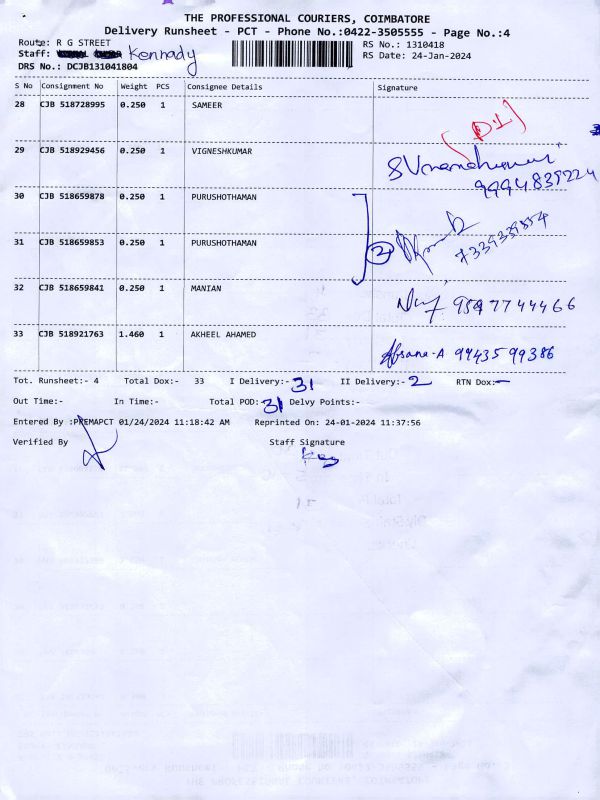 THE PROFESSIONAL COURIERS, COIMBATORE
Delivery Runsheet - PCT - Phone No.:0422-3505555 - Page No.:4
Route: R G STREET
RS No.: 1310418
Staff: Kennady
RS Date: 24-Jan-2024
DRS No.: DCJB131041804
S No Consignment No Weight PCS Consignee Details Signature
28 CJB 518728995 0.250 1 SAMEER
29 CJB 518929456 0.250 1 VIGNESHKUMAR
9994839224
30 CJB 518659878 0.250 1 PURUSHOTHAMAN
31 CJB 518659853 0.250 1 PURUSHOTHAMAN 2
32 CJB 518659841 0.250 1 MANIAN
9597744466
33 CJB 518921763 1.460 1 AKHEEL AHAMED
Afsana-A 99435 99386
Tot. Runsheet:- 4 Total Dox:- 33 I Delivery:- 31 II Delivery:- 2 RTN Dox:-
Out Time:- In Time:- Total POD: 31 Delvy Points:-
Entered By :PREMAPCT 01/24/2024 11:18:42 AM Reprinted On: 24-01-2024 11:37:56
Verified By Staff Signature